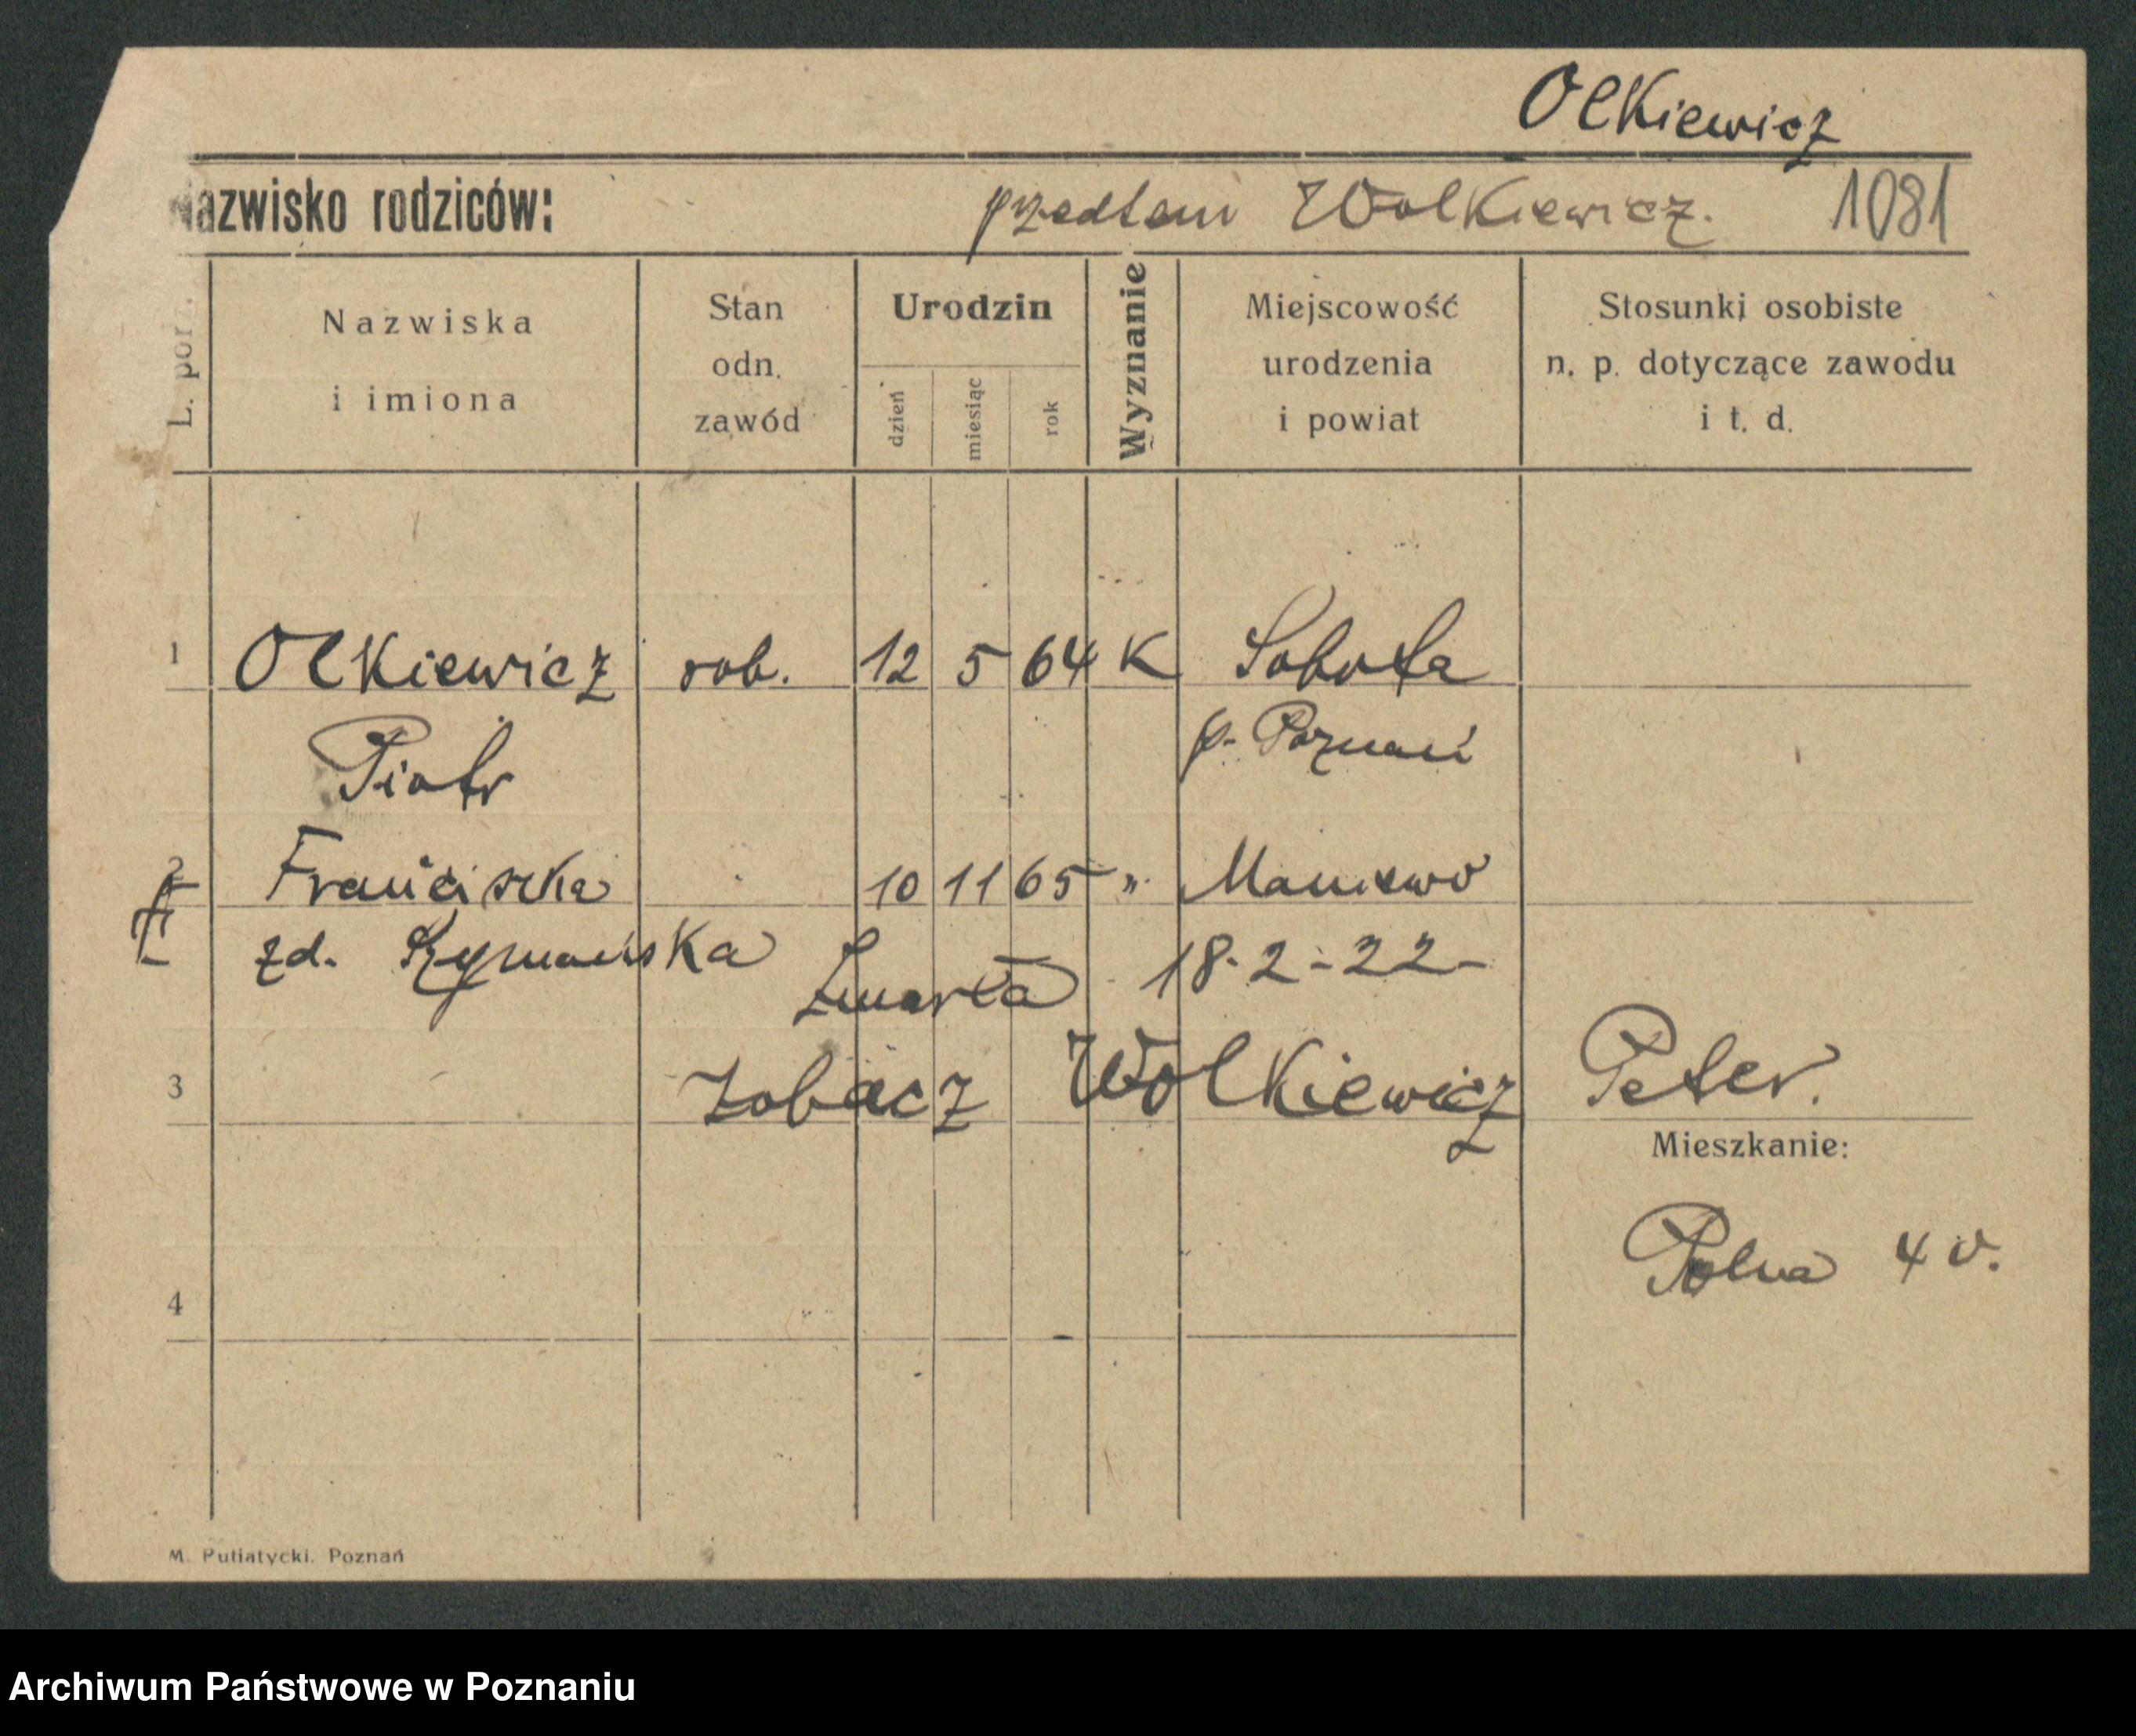 Olkiewicz
Nazwisko rodziców: przedtem Wolkiewicz. 1081
L. porz.
Nazwiska i imiona
Stan odn. zawód
Urodzin
dzień miesiąc rok
Wyznanie
Miejscowość urodzenia i powiat
Stosunki osobiste n. p. dotyczące zawodu i t. d.
1 Olkiewicz rob. 12 5 64 K Sobota
Piotr p. Poznań
2 Franciszka 10 11 65 " Maniewo
zd. Szymańska Zmarła 18-2-22-
3 zobacz Wolkiewicz Peter.
Mieszkanie:
Polna 4 v.
4
M. Putiatycki. Poznań
Archiwum Państwowe w Poznaniu